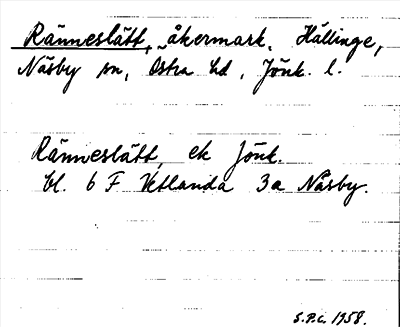 Ränneslätt, åkermark, Hällinge,
Näsby sn, Östra hd, Jönk. l.
Ränneslätt, ek Jönk.
bl. 6 F Vetlanda 3a Näsby.
S.P.C. 1958.